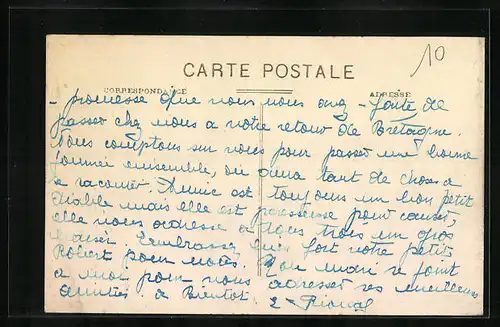 10
CARTE POSTALE
CORRESPONDANCE ADRESSE
- promesse que vous nous avez - faite de
passer chez nous à votre retour de Bretagne.
Nous comptons sur vous pour passer une bonne
journée ensemble, on aura tant de choses à
se raconter. Annie est toujours un bon petit
diable mais elle est paresseuse pour causer,
elle vous adresse à tous trois un gros
baiser. Embrassez bien fort votre petit
Robert pour nous. Mon mari se joint
à moi pour vous adresser ses meilleures
amitiés. à Bientôt.